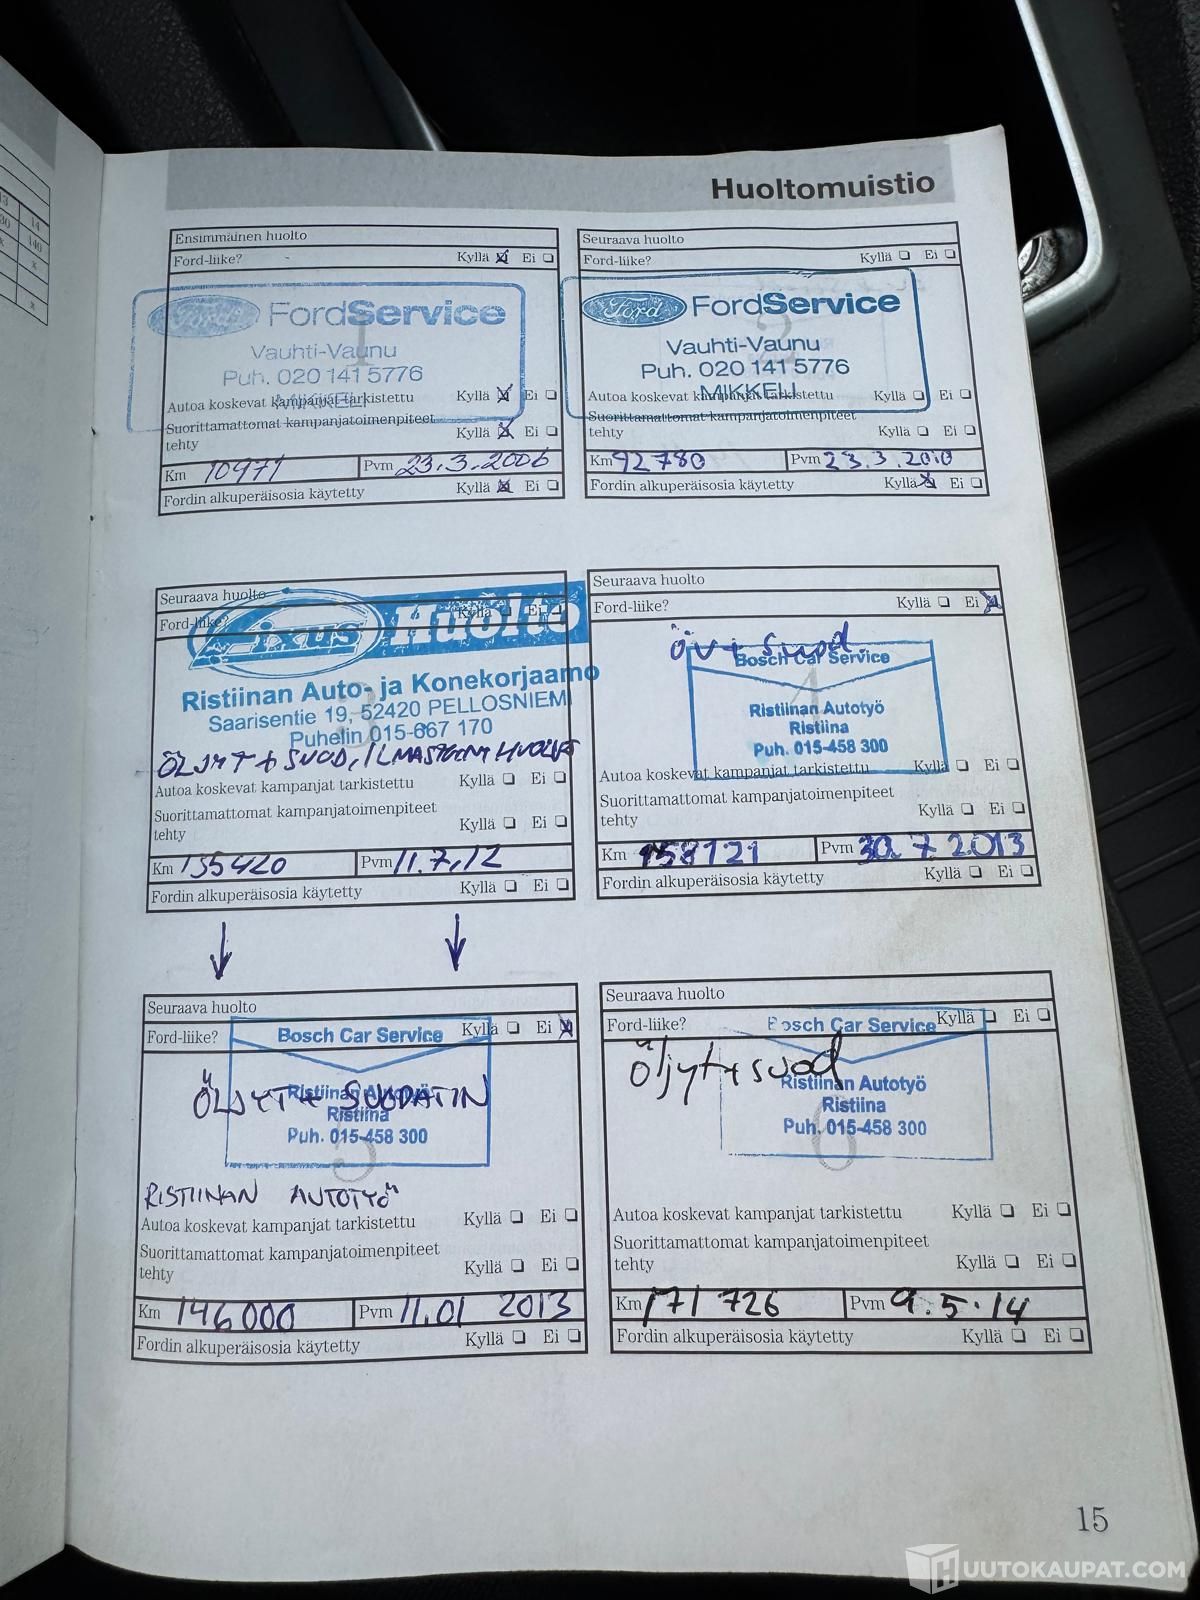 13 14
30 140
x x
x
Huoltomuistio
Ensimmäinen huolto
Ford-liike? Kyllä Ei
Ford FordService
Vauhti-Vaunu
Puh. 020 141 5776
MIKKELI
1
Autoa koskevat kampanjat tarkistettu Kyllä Ei
Suorittamattomat kampanjatoimenpiteet
tehty Kyllä Ei
Km 10971 Pvm 23.3.2006
Fordin alkuperäisosia käytetty Kyllä Ei
Seuraava huolto
Ford-liike? Kyllä Ei
Ford FordService
Vauhti-Vaunu
Puh. 020 141 5776
MIKKELI
2
Autoa koskevat kampanjat tarkistettu Kyllä Ei
Suorittamattomat kampanjatoimenpiteet
tehty Kyllä Ei
Km 92780 Pvm 23.3.2010
Fordin alkuperäisosia käytetty Kyllä Ei
Seuraava huolto
Ford-liike? Kyllä Ei
Fixus Huolto
Ristiinan Auto- ja Konekorjaamo
Saarisentie 19, 52420 PELLOSNIEMI
Puhelin 015-667 170
3
ÖLJYT + SUOD, ILMASTOINT HUOLTO
Autoa koskevat kampanjat tarkistettu Kyllä Ei
Suorittamattomat kampanjatoimenpiteet
tehty Kyllä Ei
Km 135420 Pvm 11.7.12
Fordin alkuperäisosia käytetty Kyllä Ei
Seuraava huolto
Ford-liike? Kyllä Ei
öv+ suod
Bosch Car Service
Ristiinan Autotyö
Ristiina
Puh. 015-458 300
4
Autoa koskevat kampanjat tarkistettu Kyllä Ei
Suorittamattomat kampanjatoimenpiteet
tehty Kyllä Ei
Km 158121 Pvm 30.7.2013
Fordin alkuperäisosia käytetty Kyllä Ei
Seuraava huolto
Ford-liike? Kyllä Ei
Bosch Car Service
ÖLJYT + SUODATIN
Ristiinan Autotyö
Ristiina
Puh. 015-458 300
5
RISTIINAN AUTOTYÖ
Autoa koskevat kampanjat tarkistettu Kyllä Ei
Suorittamattomat kampanjatoimenpiteet
tehty Kyllä Ei
Km 146000 Pvm 11.01 2013
Fordin alkuperäisosia käytetty Kyllä Ei
Seuraava huolto
Ford-liike? Kyllä Ei
Bosch Car Service
öljyt+suod
Ristiinan Autotyö
Ristiina
Puh. 015-458 300
6
Autoa koskevat kampanjat tarkistettu Kyllä Ei
Suorittamattomat kampanjatoimenpiteet
tehty Kyllä Ei
Km 171 726 Pvm 9.5.14
Fordin alkuperäisosia käytetty Kyllä Ei
15
HUUTOKAUPAT.COM